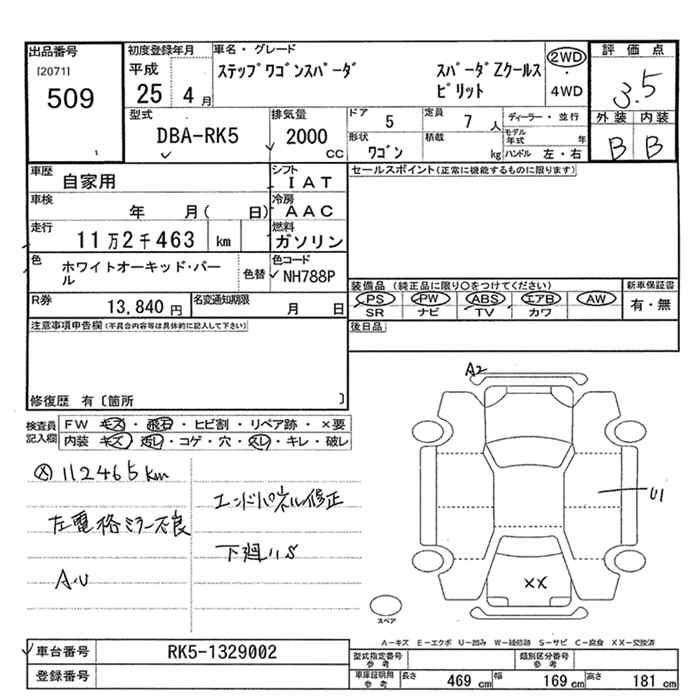 出品番号
[2071]
509
1
初度登録年月
平成
25 4 月
車名・グレード
ステップワゴンスパーダ
スパーダZクールスピリット
2WD
・
4WD
評価点
3.5
外装 内装
B B
型式
DBA-RK5
排気量
2000
CC
ドア 5
定員 7 人
ディーラー・並行
形状
ワゴン
積載
kg
モデル年式 年
ハンドル 左・右
車歴
自家用
シフト
IAT
車検
年 月( 日)
冷房
AAC
走行
11万2千463 km
燃料
ガソリン
色
ホワイトオーキッド・パール
色替
色コード
NH788P
R券
13,840 円
名変通知期限
月 日
セールスポイント(正常に機能するものに限ります)
装備品(純正品に限り○をつけてください)
新車保証書
PS PW ABS エアB AW
SR ナビ TV カワ
有・無
後日品
注意事項申告欄(不具合内容等は具体的に記入して下さい)
修復歴 有〔箇所 〕
検査員記入欄
FW キズ・飛石・ヒビ割・リペア跡・×要
内装 キズ・汚レ・コゲ・穴・スレ・キレ・破レ
メ 112465km
左電格ミラー不良
AU
エンドパネル修正
下廻りS
A2
U1
XX
スペア
A-キズ E-エクボ U-凹み W-補修跡 S-サビ C-腐食 XX-交換済
車台番号
RK5-1329002
登録番号
型式指定番号参考
類別区分番号参考
車庫証明用参考
長さ 469 cm
幅 169 cm
高さ 181 cm